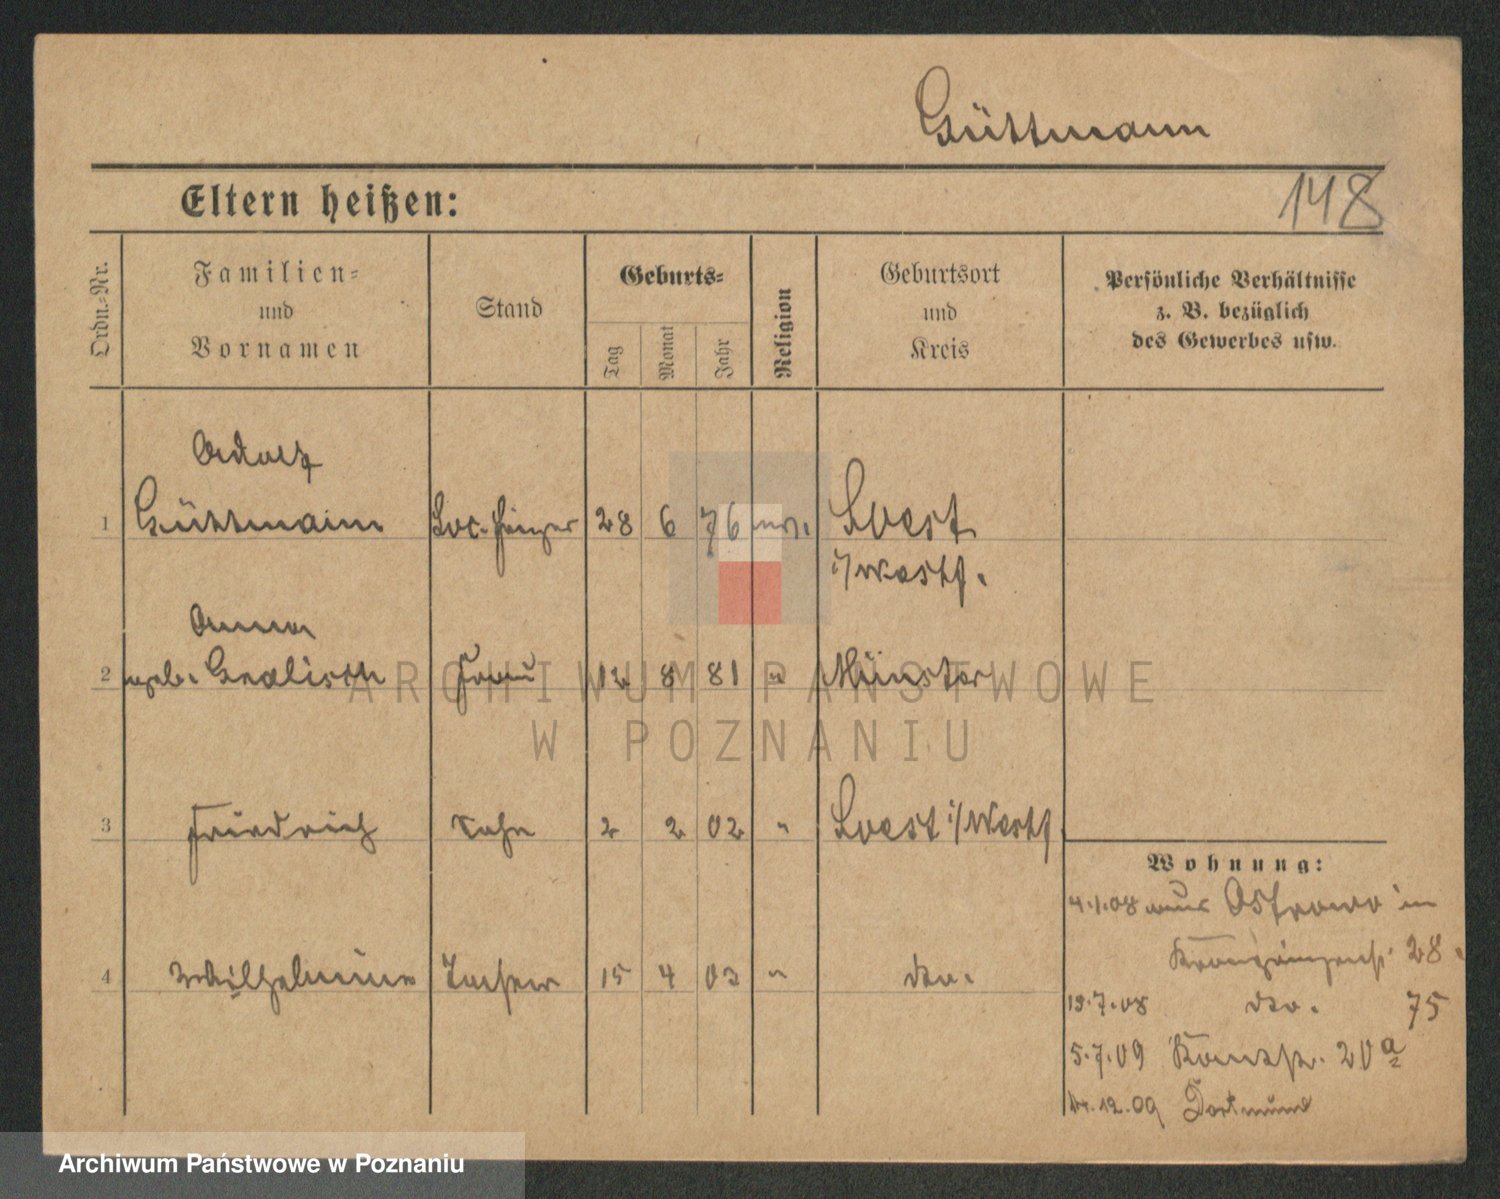 Güttmann
148
Eltern heißen:
Ordn.-Nr.
Familien-
und
Vornamen
Stand
Geburts-
Tag
Monat
Jahr
Religion
Geburtsort
und
Kreis
Persönliche Verhältnisse
z. B. bezüglich
des Gewerbes usw.
Adolf
1 Güttmann 28 6 76 Soest
i/Westf.
Anna
2 geb. Frau 12 8 81 " Münster
3 Friedrich Sohn 2 2 02 " Soest i/Westf
4 Wilhelmine Tochter 15 4 03 " dto.
Wohnung:
4.1.08 aus Ostrowo in
28.
13.7.08 dto. 75
5.7.09 20a
12.09 Dortmund
ARCHIWUM PAŃSTWOWE
W POZNANIU
Archiwum Państwowe w Poznaniu